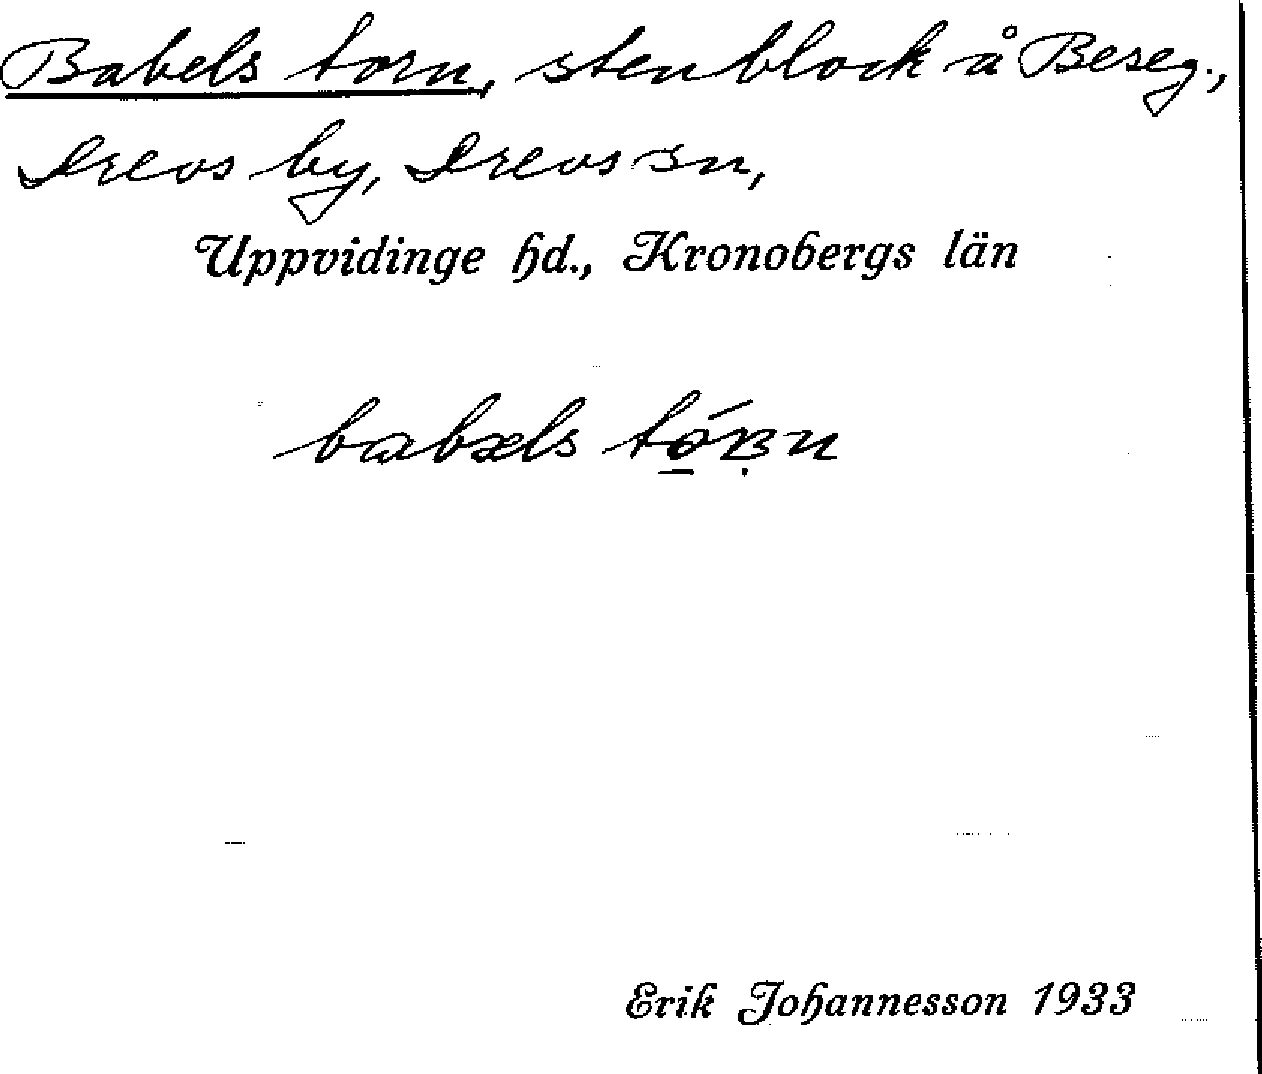 Babels torn, stenblock å Beseg.,
Drevs by, Drevs sn,
Uppvidinge hd., Kronobergs län
babels
Erik Johannesson 1933